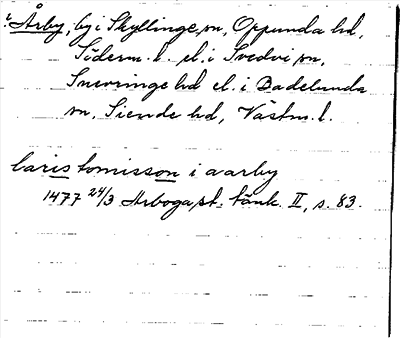 Årby, by i Skyllinge sn, Oppunda hd,
Söderm. l. el. i Svedvi sn,
Snevringe hd el. i Badelunda
sn, Siende hd, Västm. l.
laris tomisson i aarby
1477 24/3 Arboga st:s tänk. II, s. 83.